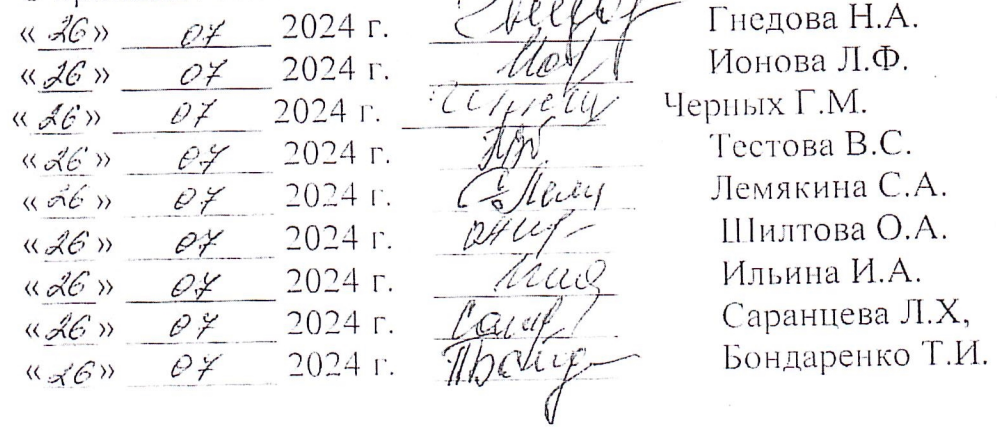 «26» 07 2024 г. Гнедова Н.А.
«26» 07 2024 г. Ионова Л.Ф.
«26» 07 2024 г. Черных Г.М.
«26» 07 2024 г. Тестова В.С.
«26» 07 2024 г. Лемякина С.А.
«26» 07 2024 г. Шилтова О.А.
«26» 07 2024 г. Ильина И.А.
«26» 07 2024 г. Саранцева Л.Х,
«26» 07 2024 г. Бондаренко Т.И.